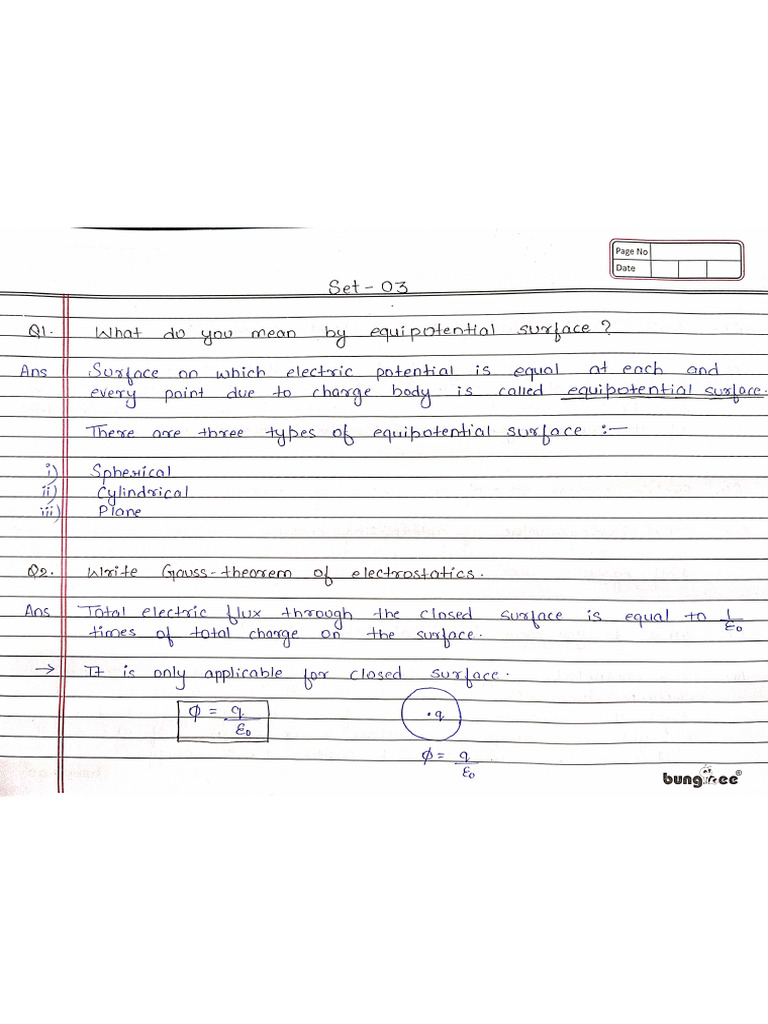 Page No
Date
Set - 03
Q1. What do you mean by equipotential surface ?
Ans Surface on which electric potential is equal at each and
every point due to charge body is called equipotential surface.
There are three types of equipotential surface :-
i) Spherical
ii) Cylindrical
iii) Plane
Q2. Write Gauss-theorem of electrostatics.
Ans Total electric flux through the closed surface is equal to 1/ε₀
times of total charge on the surface.
→ It is only applicable for closed surface.
ϕ = q/ε₀
• q
ϕ = q/ε₀